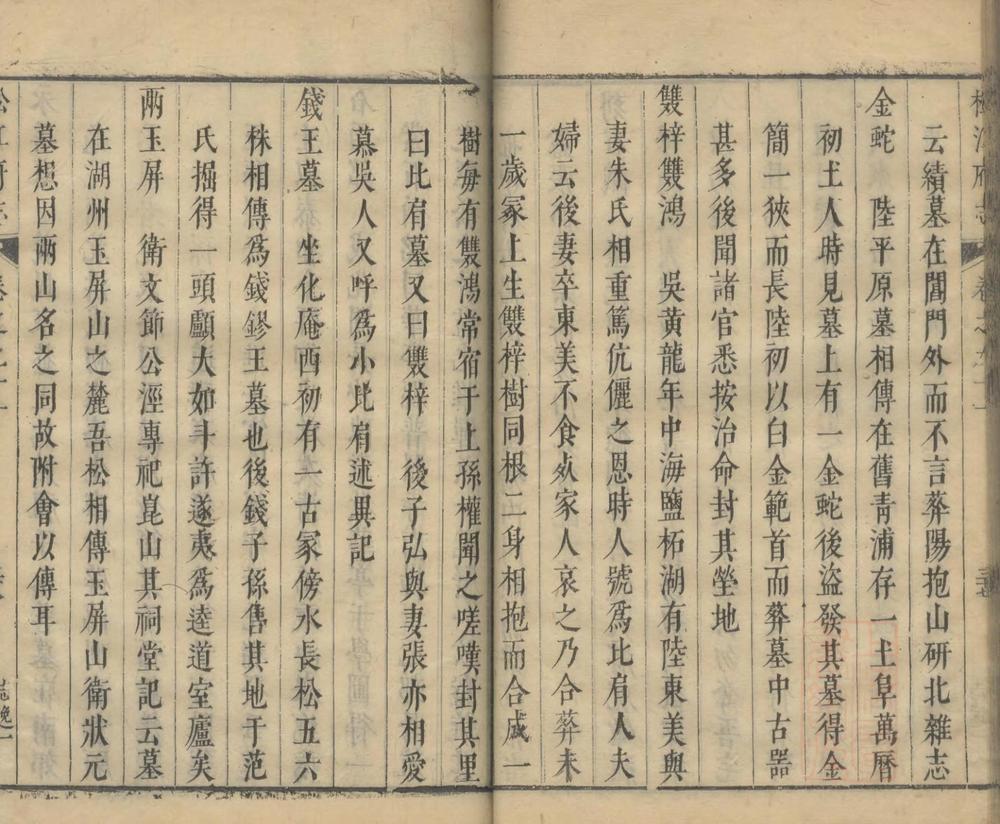 云績墓在閶門外而不言葬陽抱山研北雜志
金蛇　陸平原墓相傳在舊青浦存一土阜萬曆
初土人時見墓上有一金蛇後盜發其墓得金
簡一狹而長陸初以白金範首而葬墓中古器
甚多後聞諸官悉按治命封其塋地
雙梓雙鴻　吳黃龍年中海鹽柘湖有陸東美與
妻朱氏相重篤伉儷之恩時人號為比肩人夫
婦云後妻卒東美不食死家人哀之乃合葬未
一歲冢上生雙梓樹同根二身相抱而合成一
樹每有雙鴻常宿于上孫權聞之嗟嘆封其里
曰比肩墓又曰雙梓　後子弘與妻張亦相愛
慕吳人又呼為小比肩述異記
錢王墓　坐化庵西初有一古冢傍水長松五六
株相傳為錢鏐王墓也後錢子孫售其地于范
氏掘得一頭顱大如斗許遂夷為逵道室廬矣
兩玉屏　衛文節公涇專祀崑山其祠堂記云墓
在湖州玉屏山之麓吾松相傳玉屏山衛狀元
墓想因兩山名之同故附會以傳耳